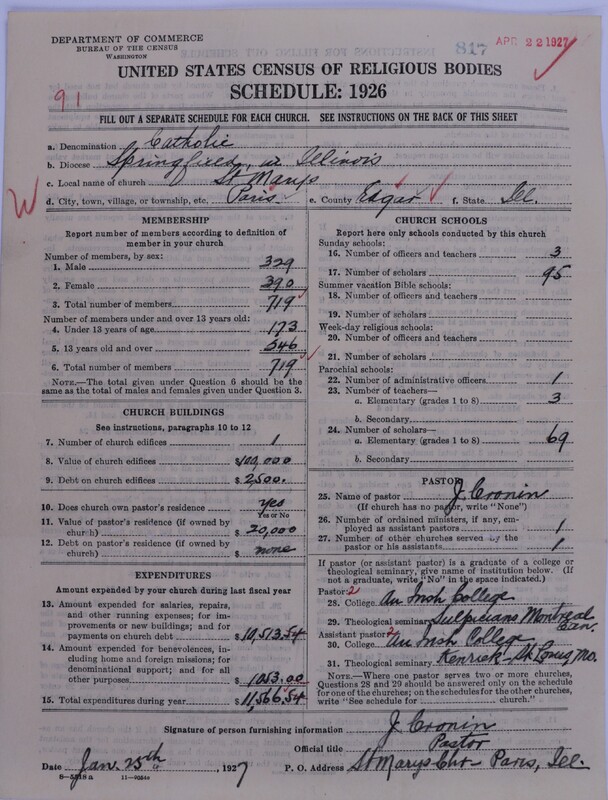 DEPARTMENT OF COMMERCE
BUREAU OF THE CENSUS
WASHINGTON
817
APR 22 1927
UNITED STATES CENSUS OF RELIGIOUS BODIES
91
SCHEDULE: 1926
FILL OUT A SEPARATE SCHEDULE FOR EACH CHURCH. SEE INSTRUCTIONS ON THE BACK OF THIS SHEET
a. Denomination Catholic
b. Diocese Springfield, in Illinois
c. Local name of church St Marys
W
d. City, town, village, or township, etc. Paris e. County Edgar f. State Ill.
MEMBERSHIP
Report number of members according to definition of
member in your church
Number of members, by sex:
1. Male 329
2. Female 390
3. Total number of members 719
Number of members under and over 13 years old:
4. Under 13 years of age 173
5. 13 years old and over 546
6. Total number of members 719
NOTE.—The total given under Question 6 should be the
same as the total of males and females given under Question 3.
CHURCH BUILDINGS
See instructions, paragraphs 10 to 12
7. Number of church edifices 1
8. Value of church edifices $100,000
9. Debt on church edifices $2,500.
10. Does church own pastor's residence yes
Yes or No
11. Value of pastor's residence (if owned by
church) $20,000
12. Debt on pastor's residence (if owned by
church) $ none
EXPENDITURES
Amount expended by your church during last fiscal year
13. Amount expended for salaries, repairs,
and other running expenses; for im-
provements or new buildings; and for
payments on church debt $10,513.54
14. Amount expended for benevolences,
including home and foreign missions; for
denominational support; and for all
other purposes $1053.00
15. Total expenditures during year $11,566.54
CHURCH SCHOOLS
Report here only schools conducted by this church
Sunday schools:
16. Number of officers and teachers 3
17. Number of scholars 95
Summer vacation Bible schools:
18. Number of officers and teachers
19. Number of scholars
Week-day religious schools:
20. Number of officers and teachers
21. Number of scholars
Parochial schools:
22. Number of administrative officers 1
23. Number of teachers—
a. Elementary (grades 1 to 8) 3
b. Secondary
24. Number of scholars—
a. Elementary (grades 1 to 8) 69
b. Secondary
PASTOR
25. Name of pastor J. Cronin
(If church has no pastor, write "None")
26. Number of ordained ministers, if any, em-
ployed as assistant pastors 1
27. Number of other churches served by the
pastor or his assistants 1
If pastor (or assistant pastor) is a graduate of a college or
theological seminary, give name of institution below. (If
not a graduate, write "No" in the space indicated.)
Pastor: 2
28. College An Irish College
29. Theological seminary Sulpicians Montreal
Can.
Assistant pastor: 2
30. College An Irish College
31. Theological seminary Kenrick St Louis, Mo.
NOTE.—Where one pastor serves two or more churches,
Questions 28 and 29 should be answered only on the schedule
for one of the churches; on the schedules for the other churches,
write "See schedule for church."
Signature of person furnishing information J. Cronin
Official title Pastor
Date Jan. 25th, 1927 P. O. Address St Marys Chr Paris, Ill.